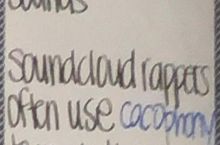 sounds
soundcloud rappers
often use cacophony